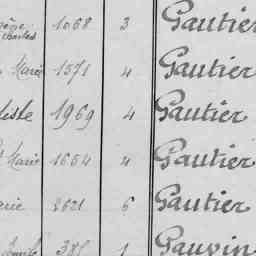 Charles 1068 3 Gautier
Marie 1571 4 Gautier
1969 4 Gautier
Marie 1664 4 Gautier
2621 6 Gautier
385 1 Gauvin